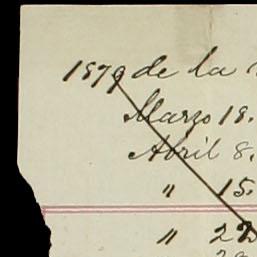 1879 de la
Marzo 18.
Abril 8.
" 15.
" 22